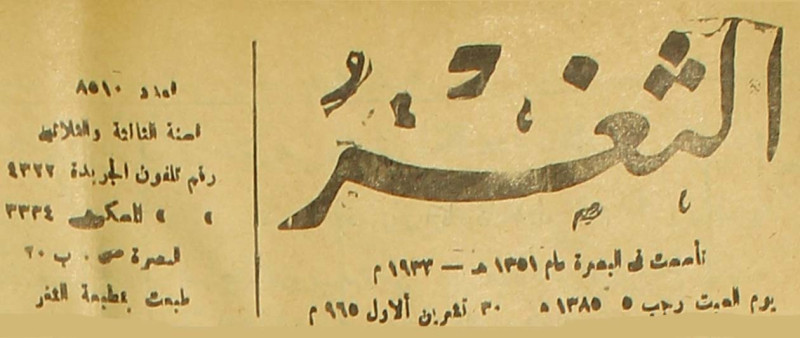 الثغر
تأسست في البصرة عام ١٣٥١ هـ — ١٩٣٣ م
يوم السبت رجب ٥ ١٣٨٥ هـ ٣٠ تشرين الاول ٩٦٥ م
العدد ٨٥١٠
السنة الثالثة والثلاثين
رقم تلفون الجريدة ٤٣٢٢
» » السكن ٣٣٣٤
البصرة ص . ب ٢٠
طبعت بمطبعة الثغر